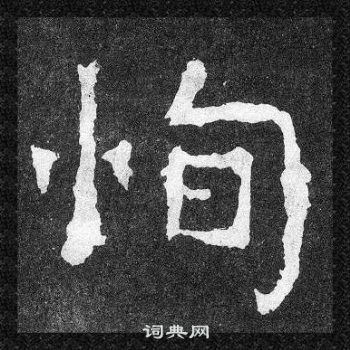 恂
词典网